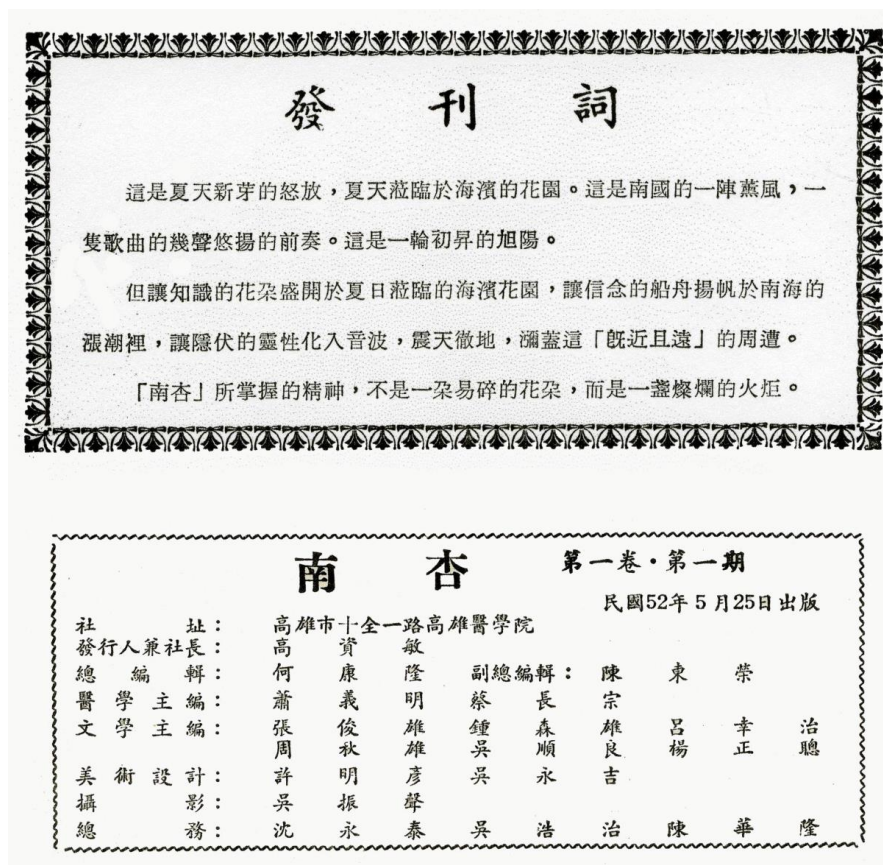 發刊詞
這是夏天新芽的怒放，夏天蒞臨於海濱的花園。這是南國的一陣薰風，一
隻歌曲的幾聲悠揚的前奏。這是一輪初昇的旭陽。
但讓知識的花朶盛開於夏日蒞臨的海濱花園，讓信念的船舟揚帆於南海的
漲潮裡，讓隱伏的靈性化入音波，震天徹地，瀰蓋這「旣近且遠」的周遭。
「南杏」所掌握的精神，不是一朶易碎的花朶，而是一盞燦爛的火炬。
南杏 第一卷・第一期
民國52年5月25日出版
社址：高雄市十全一路高雄醫學院
發行人兼社長：高資敏
總編輯：何康隆 副總編輯：陳東榮
醫學主編：蕭義明 蔡長宗
文學主編：張俊雄 鍾森雄 呂幸治
周秋雄 吳順良 楊正聰
美術設計：許明彥 吳永吉
攝影：吳振聲
總務：沈永泰 吳浩治 陳華隆